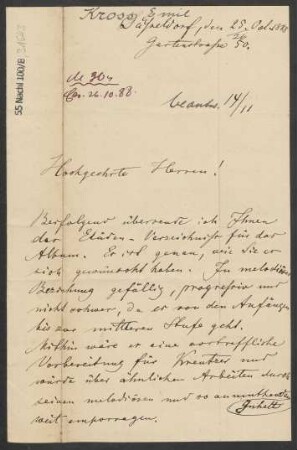 Kross, Emil
Düsseldorf, den 25. Oct. 188
Gartenstraße 50.
55 Nachl 100/B
M 30
26.10.88.
beantw. 14/11
Hochgeehrte Herren!
Beifolgend übersende ich Ihnen
das Etüden-Verzeichniss für das
Album. Es ist genau, wie Sie es
sich gewünscht haben. In melodiöser
Beziehung gefällig, progressiv und
nicht schwer, da es von den Anfängen
bis zur mittleren Stufe geht.
Mithin wäre es eine vortreffliche
Vorbereitung für Kreutzer und
würde über ähnlichen Arbeiten durch
seinen melodiösen und so anmuthenden
Inhalt
weit emporragen.